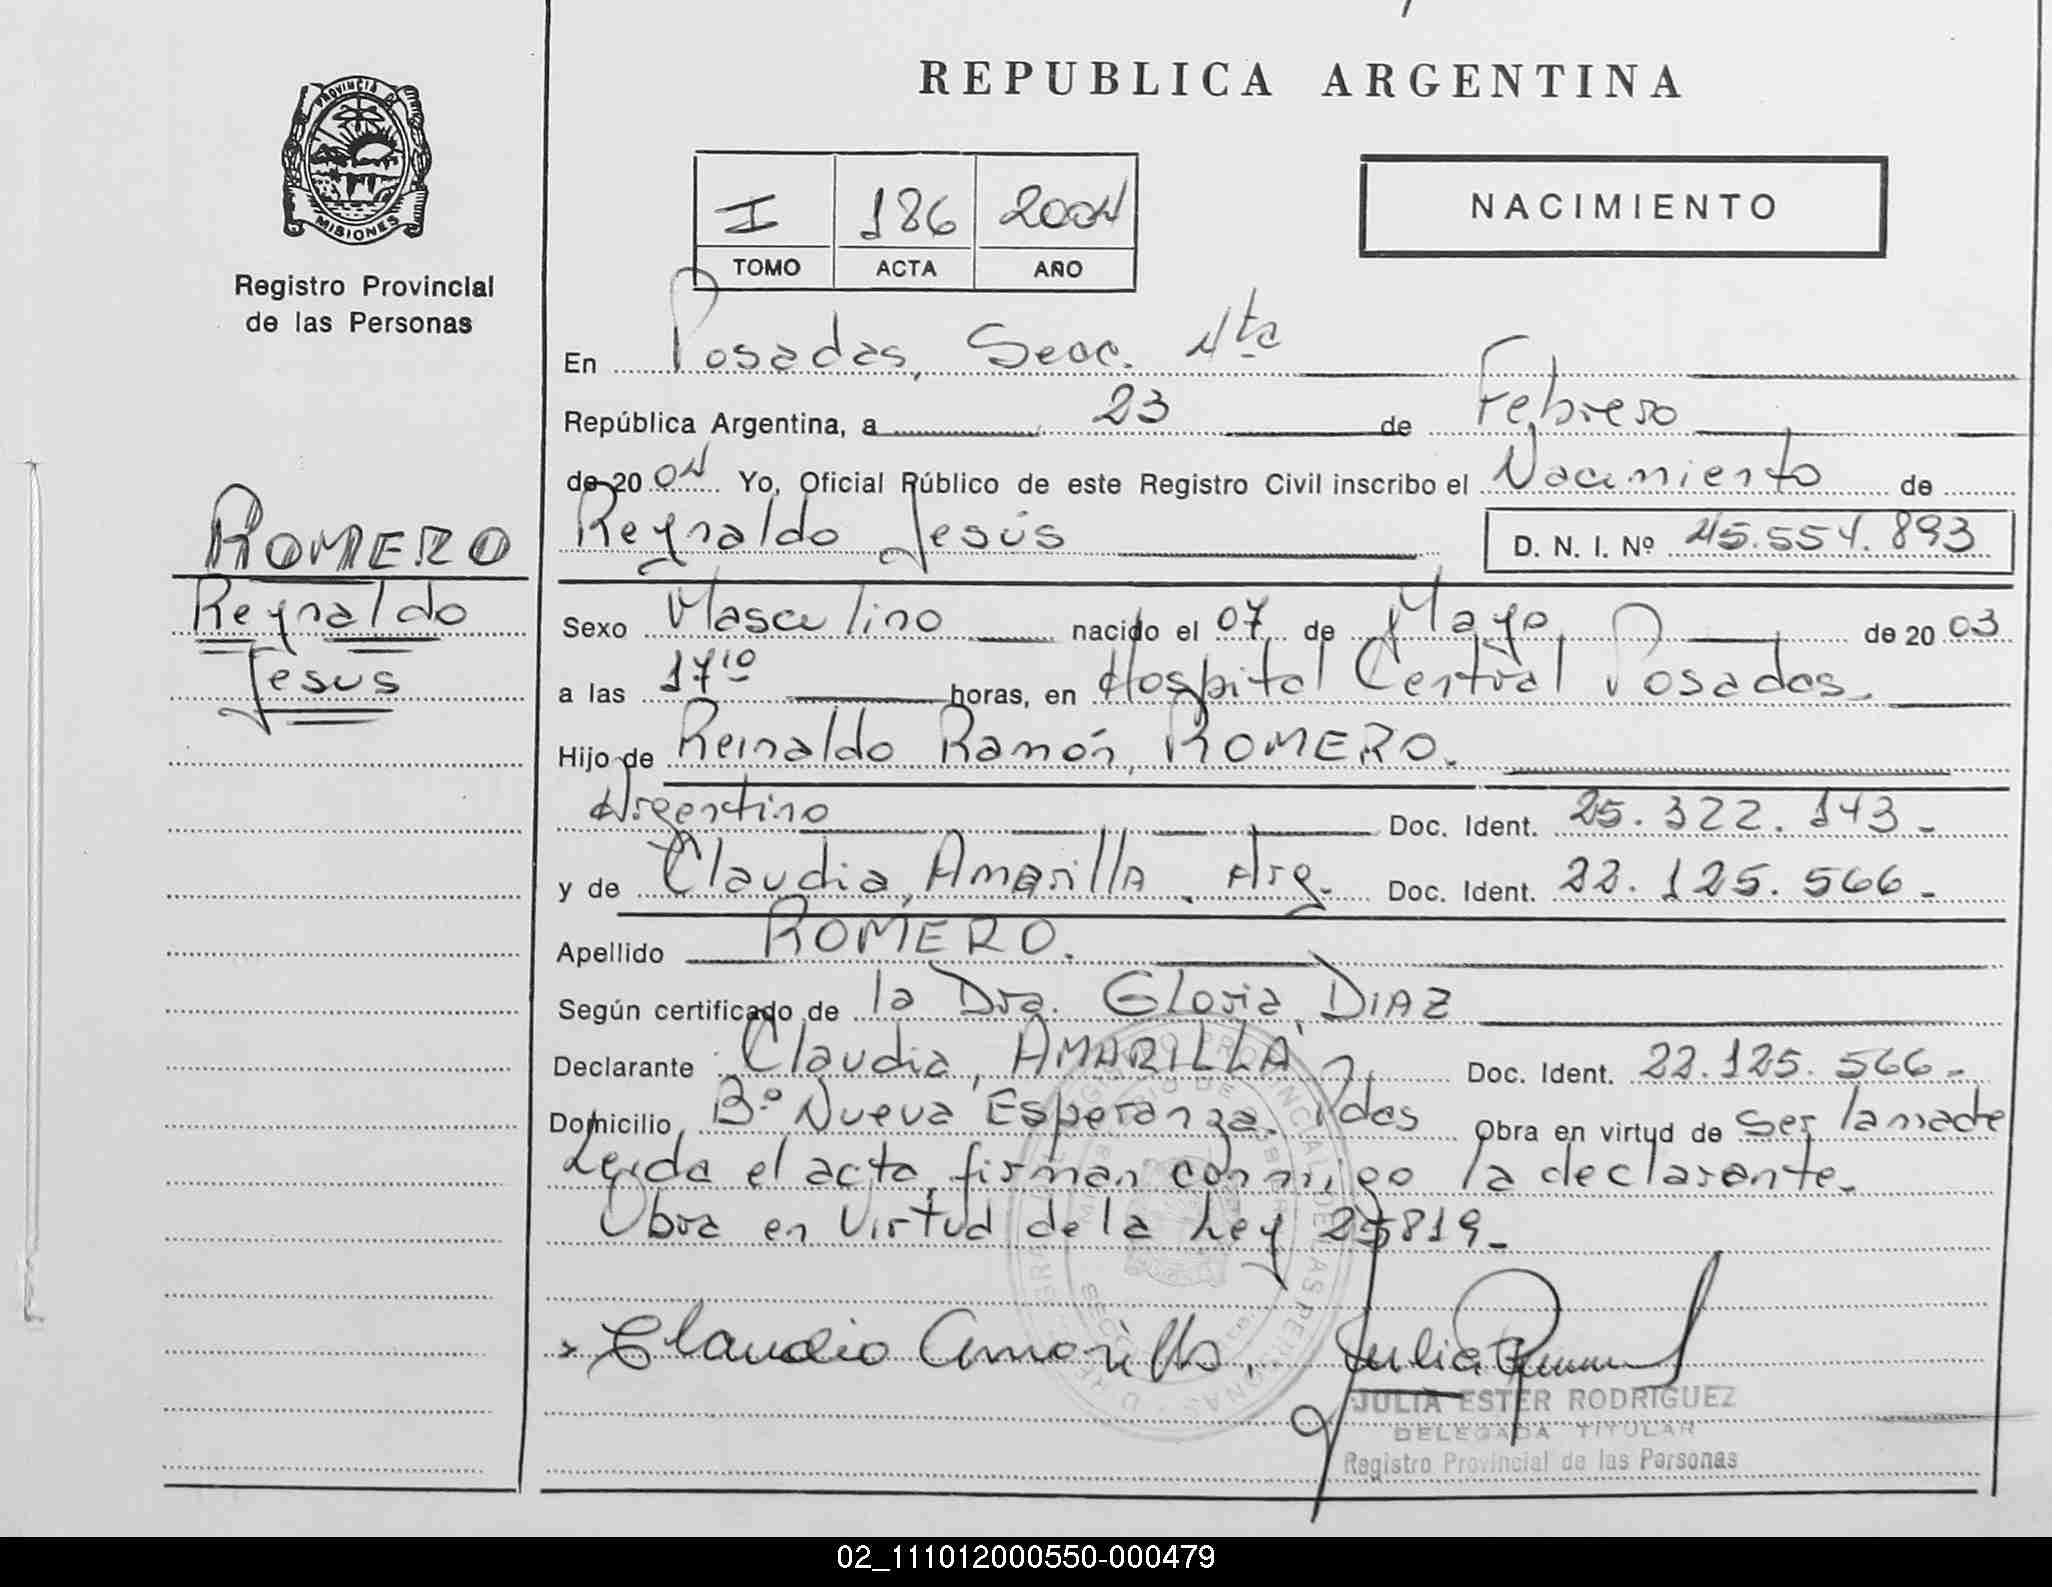 REPUBLICA ARGENTINA
PROVINCIA DE
MISIONES
Registro Provincial
de las Personas
I 186 2004
TOMO ACTA AÑO
NACIMIENTO
En Posadas, Secc. 4ta
República Argentina, a 23 de Febrero
de 2004 Yo, Oficial Público de este Registro Civil inscribo el Nacimiento de
Reynaldo Jesús D. N. I. Nº 45.554.893
ROMERO
Reynaldo
Jesus
Sexo Masculino nacido el 07 de Mayo de 2003
a las 17 10 horas, en Hospital Central Posadas.
Hijo de Reinaldo Ramón, ROMERO.
Argentino Doc. Ident. 25.322.143.-
y de Claudia, AMARILLA. Arg. Doc. Ident. 22.125.566.-
Apellido ROMERO.
Según certificado de la Dra. Gloria, DIAZ
Declarante Claudia, AMARILLA Doc. Ident. 22.125.566.-
Domicilio Bº Nueva Esperanza. Pdas Obra en virtud de ser la madre
Leida el acta, firman conmigo la declarante.
Obra en Virtud de la Ley 25819.-
Claudia Amarilla.
JULIA ESTER RODRIGUEZ
DELEGADA TITULAR
Registro Provincial de las Personas
02_111012000550-000479